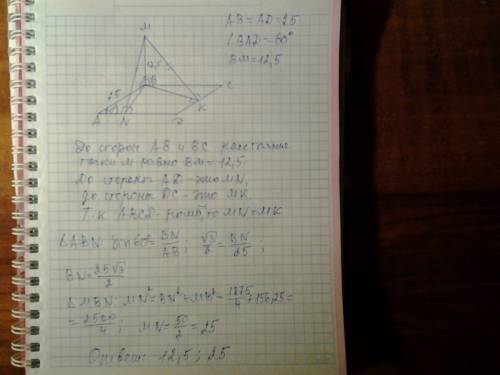 AB = AD = 25
∠BAD = 60°
BM = 12,5
M
12,5
B
C
25
K
A
N
До сторон AB и BC расстояние
точки M равно BM = 12,5
До стороны AD - это MN,
до стороны DC - это MK
Т.к ABCD - ромб, то MN = MK
△ABN sin60° = BN/AB ; √3/2 = BN/25 ;
BN = 25√3/2
△MBN: MN² = BN² + MB² = 1875/4 + 156,25 =
= 2500/4 ; MN = 50/2 = 25
Ответ: 12,5 ; 25